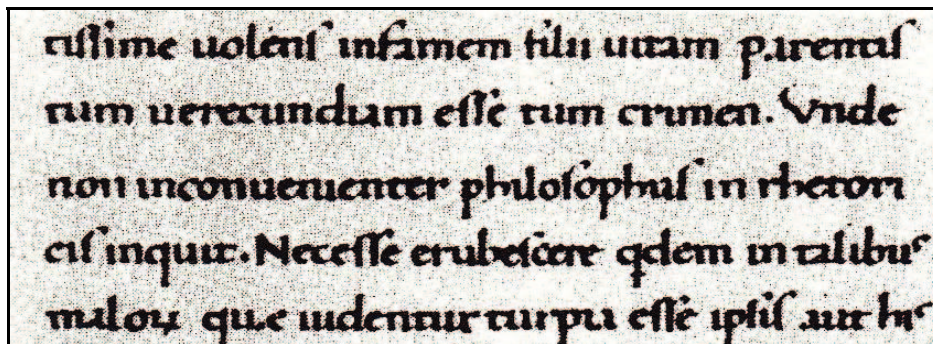 tissime uolens infamem filii uitam parentis
tum uerecundiam esse tum crimen. Vnde
non inconuenienter philosophus in rhetori
cis inquit. Necesse erubescere qdem in talibus
malorꝝ que uidentur turpia esse ipsis aut his